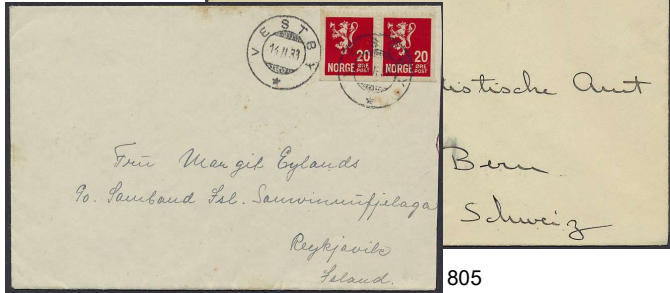 VESTBY
14.II.33
20 20
NORGE ØRE POST NORGE ØRE POST
Frú Margit Eylands
℅. Samband Ísl. Samvinnufjelaga
Reykjavik
Ísland.
istische Amt
Bern
Schweiz
805